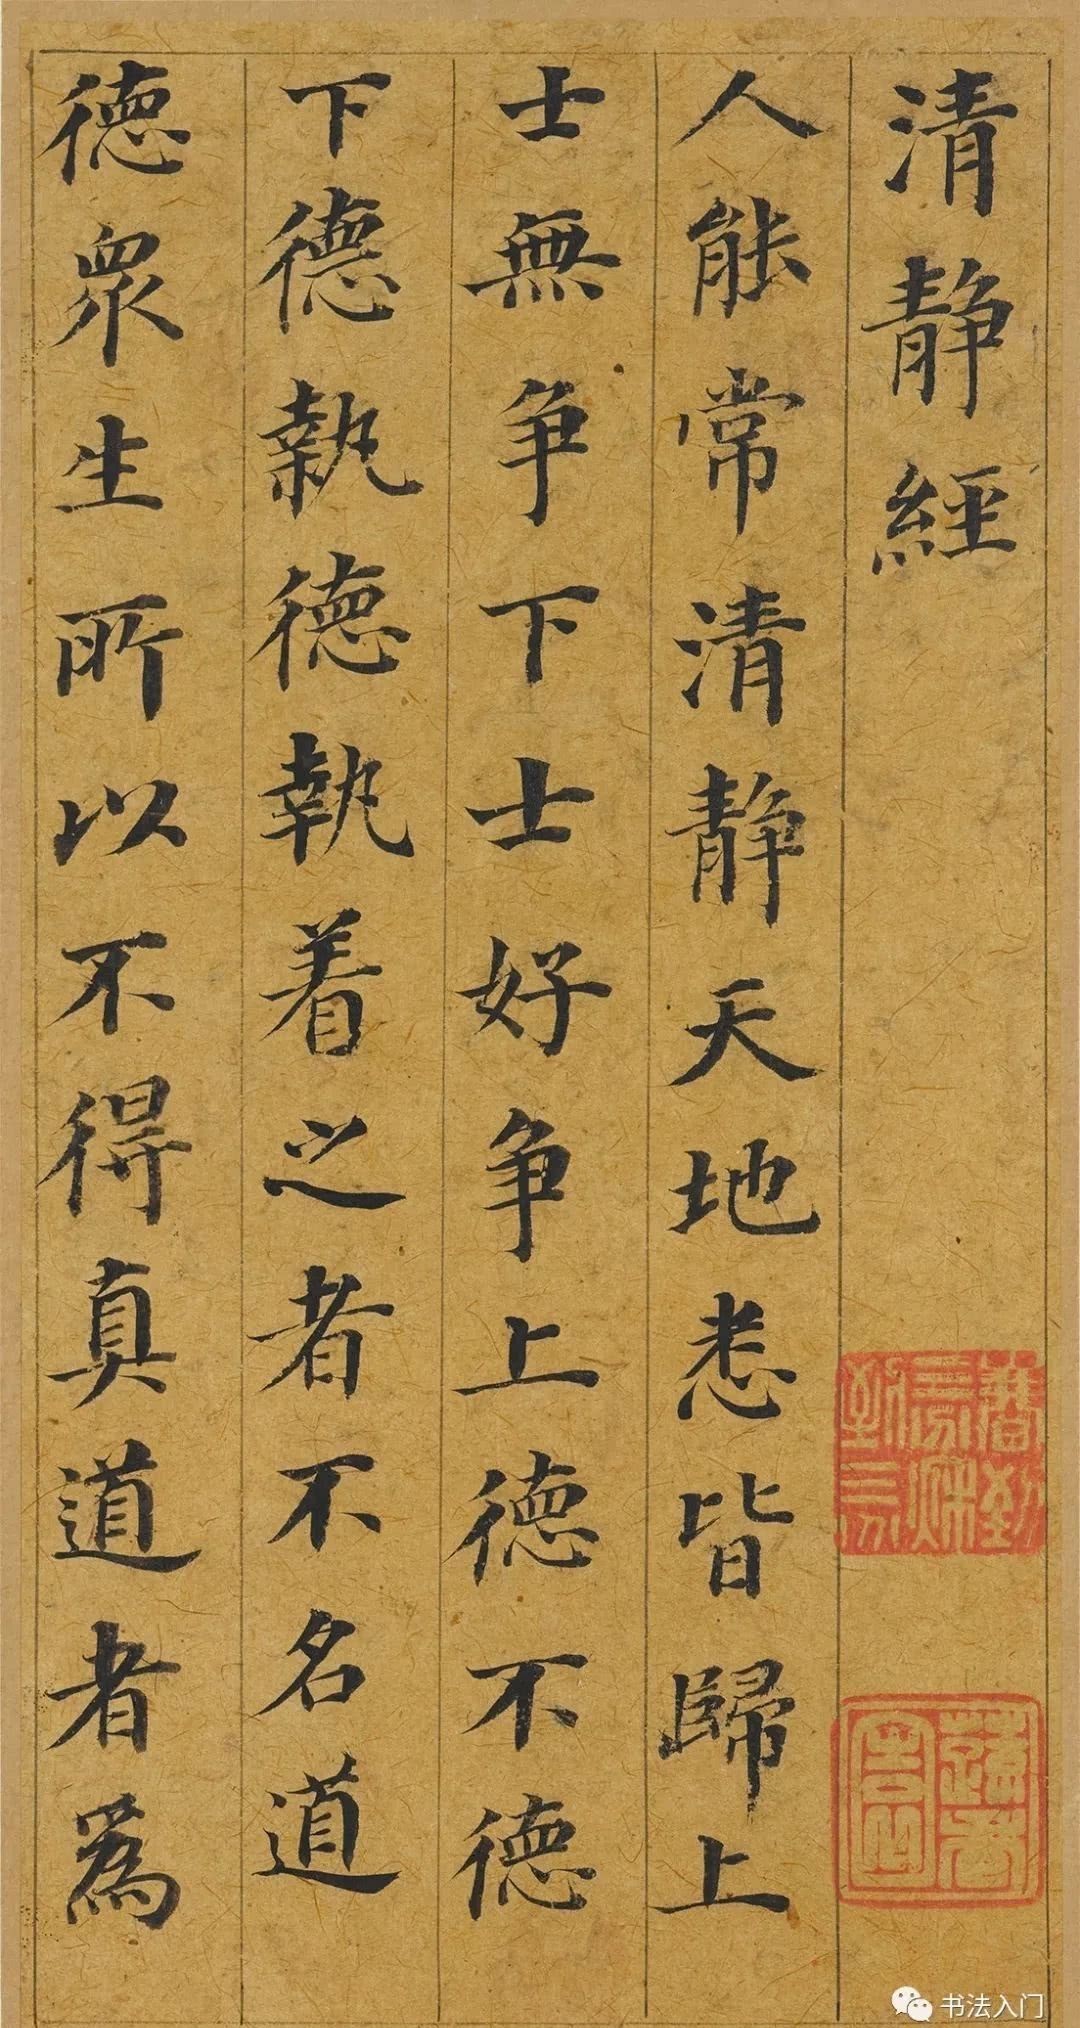 清静經
人能常清静天地悉皆歸上
士無争下士好争上德不德
下德執德執着之者不名道
德眾生所以不得真道者為
书法入门